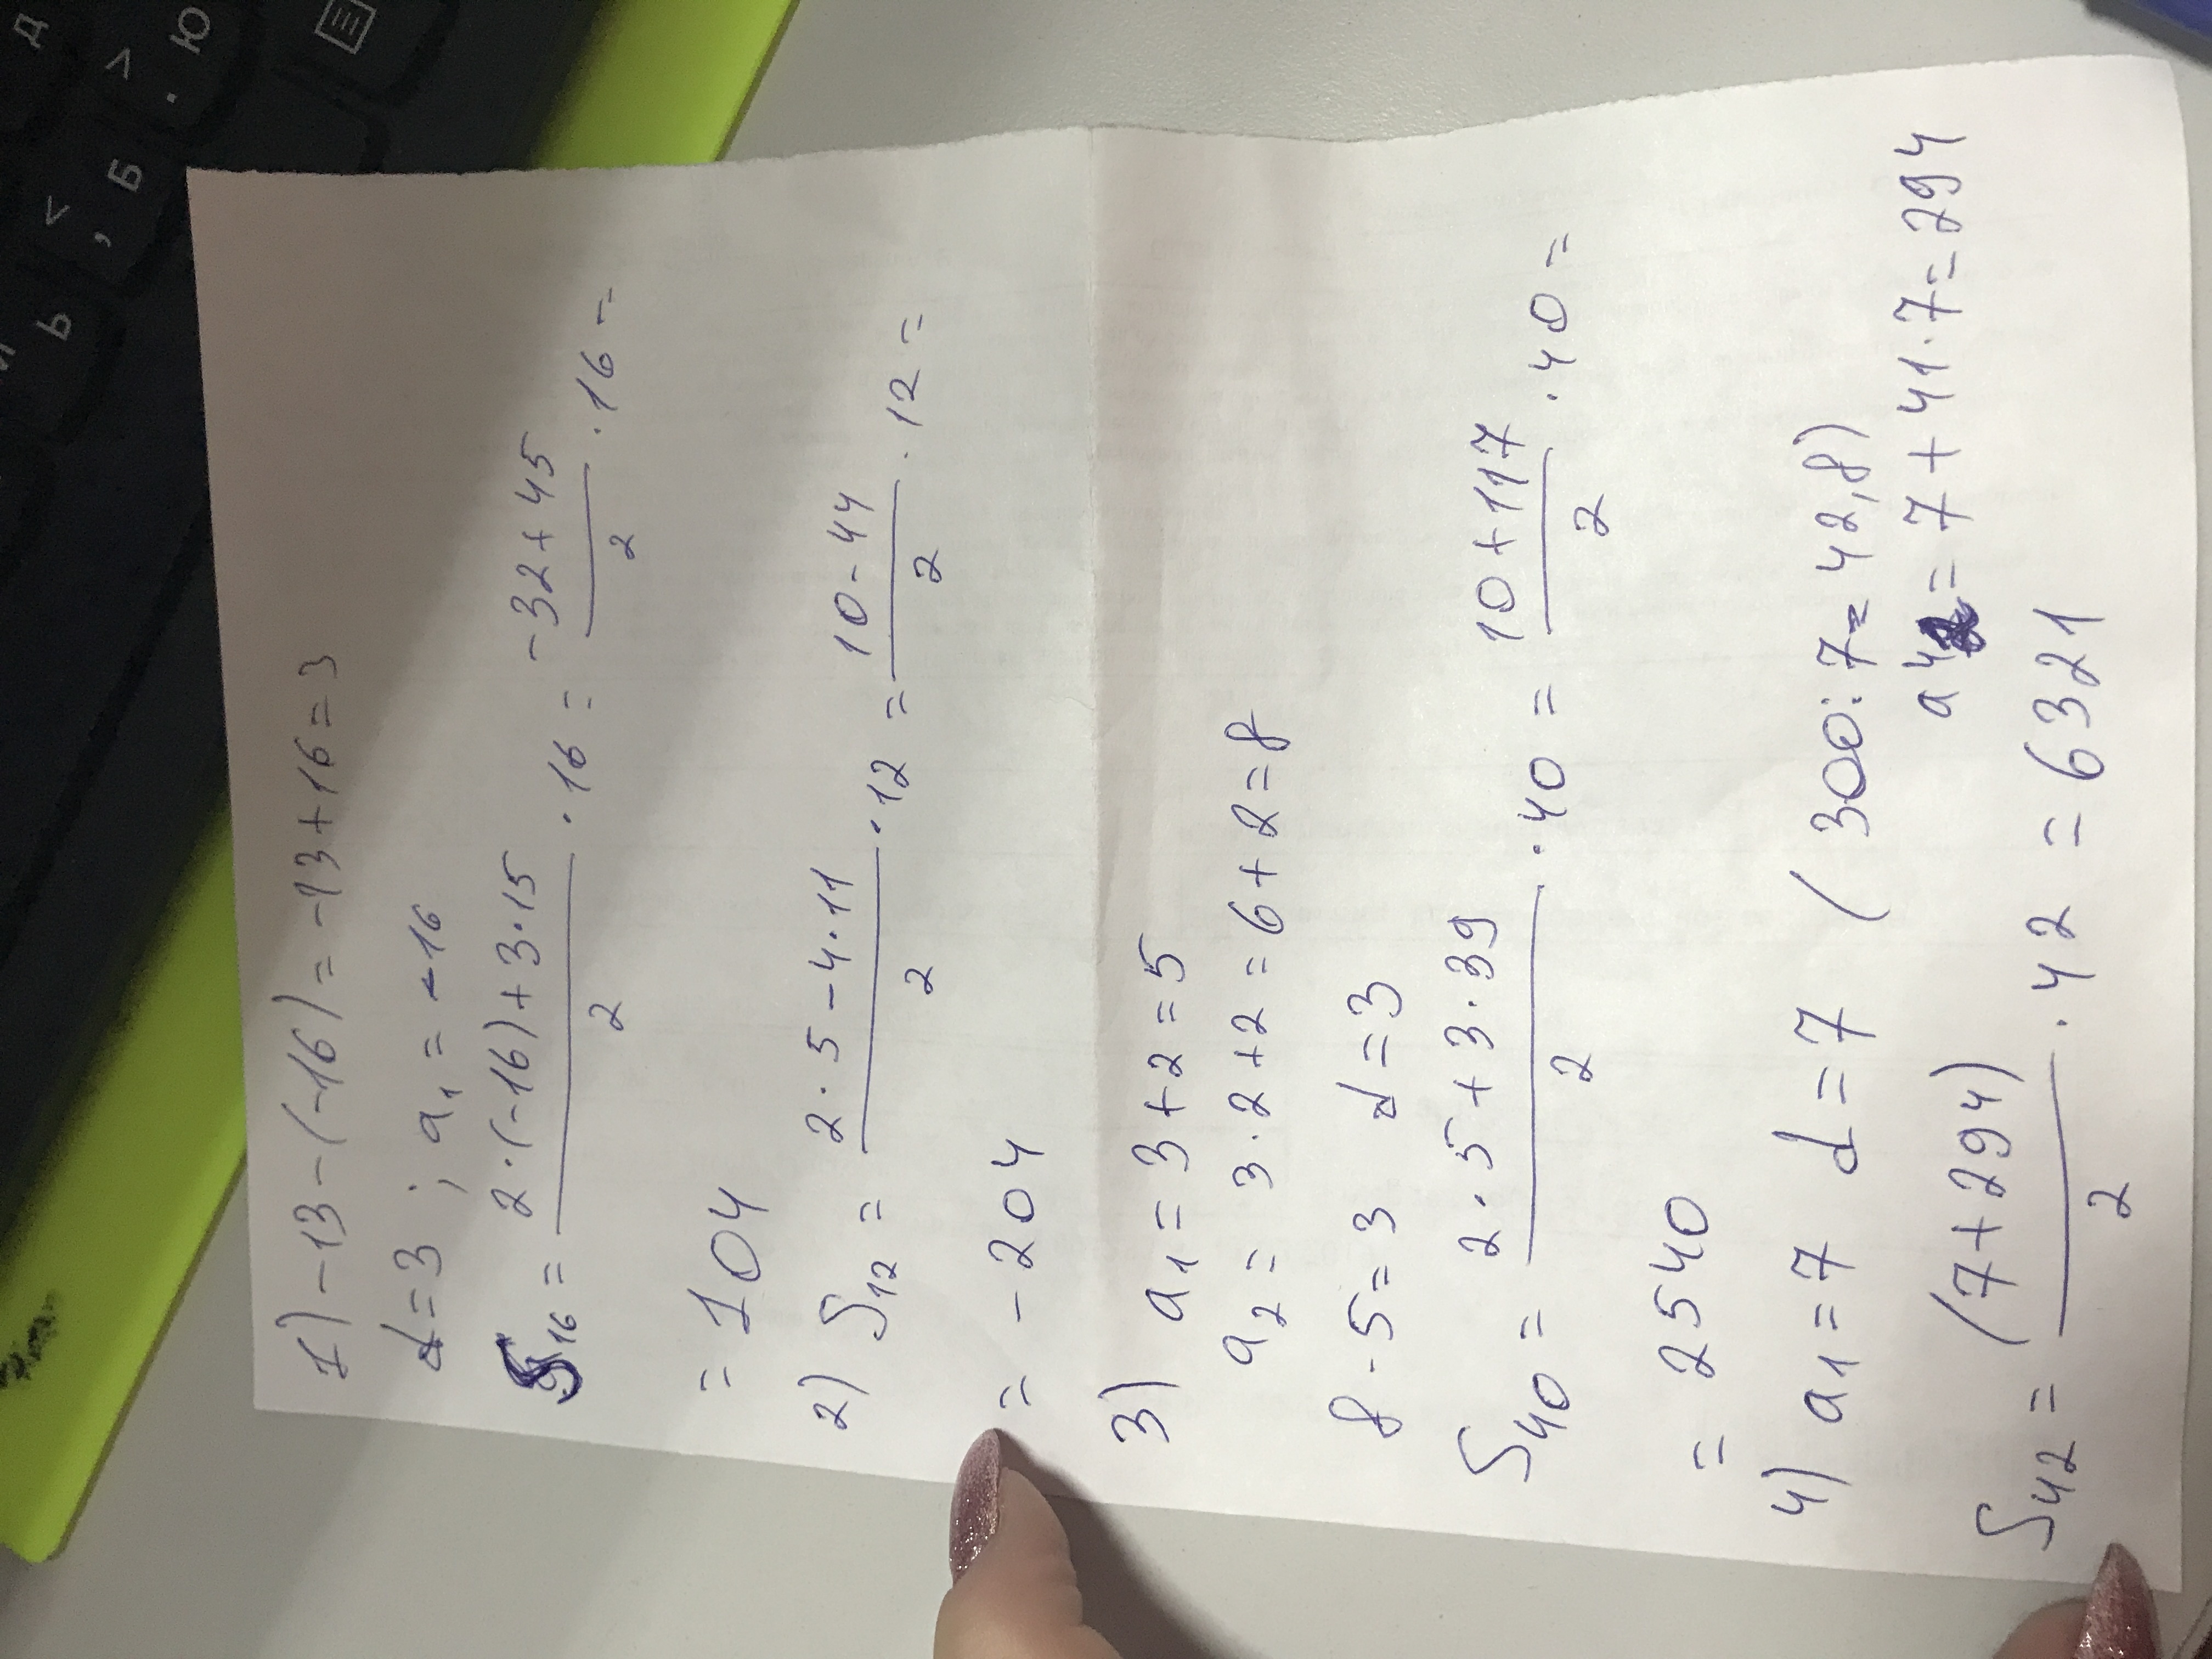 1) -13-(-16) = -13+16=3
d=3 ; a₁ = -16
S₁₆ = (2·(-16)+3·15)/2 · 16 = (-32+45)/2 · 16 =
= 104
2) S₁₂ = (2·5-4·11)/2 · 12 = (10-44)/2 · 12 =
= -204
3) a₁ = 3+2=5
a₂ = 3·2+2=6+2=8
8-5=3 d=3
S₄₀ = (2·5+3·39)/2 · 40 = (10+117)/2 · 40 =
= 2540
4) a₁=7 d=7 (300:7=42,8)
a₄₂=7+41·7=294
S₄₂ = (7+294)/2 · 42 = 6321
Д
>
.
Ю
<
,
Б
Ь